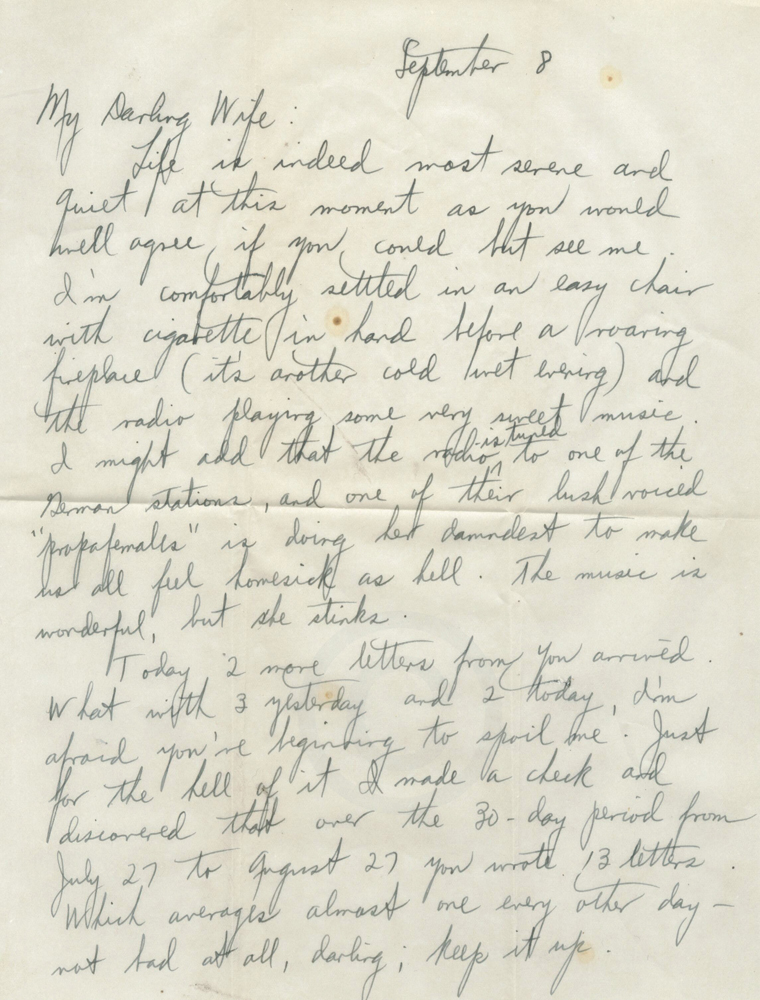 September 8
My Darling Wife:
Life is indeed most serene and
quiet at this moment as you would
well agree, if you could but see me.
I'm comfortably settled in an easy chair
with cigarette in hand before a roaring
fireplace (it's another cold wet evening) and
the radio playing some very sweet music.
I might add that the radio is tuned to one of the
German stations, and one of their lush voiced
"propafemales" is doing her damndest to make
us all feel homesick as hell. The music is
wonderful, but she stinks.
Today 2 more letters from you arrived.
What with 3 yesterday and 2 today, I'm
afraid you're beginning to spoil me. Just
for the hell of it I made a check and
discovered that over the 30-day period from
July 27 to August 27 you wrote 13 letters.
Which averages almost one every other day -
not bad at all, darling; keep it up.